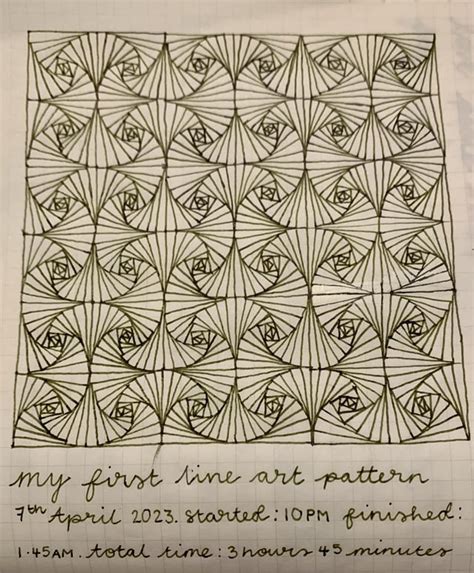 my first line art pattern
7th April 2023. started: 10PM finished:
1.45AM. total time: 3 hours 45 minutes